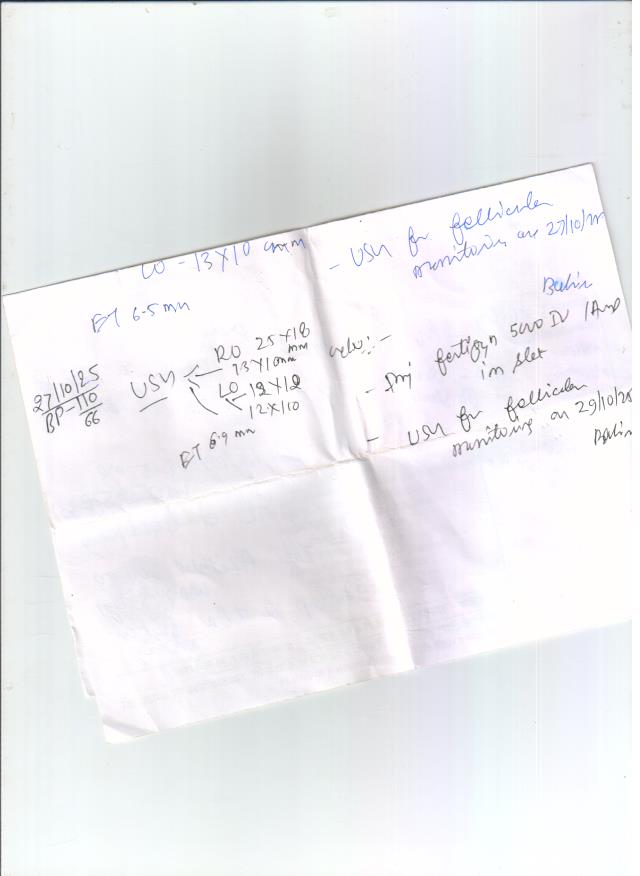 LO - 13X10 mm
- USN for follicular
monitoring on 27/10/25
ET 6.5 mm
27/10/25
BP - 110
66
USN
RO 25X18
mm
13X10mm
LO 12X12
12X10
ET 6.9 mm
Advice:-
- Inj fertigyn 5000 IU 1Amp
im stat
- USN for follicular
monitoring on 29/10/25